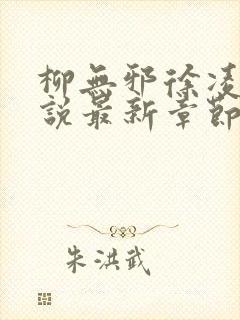 柳無邪徐凌
說最新章節
朱洪武